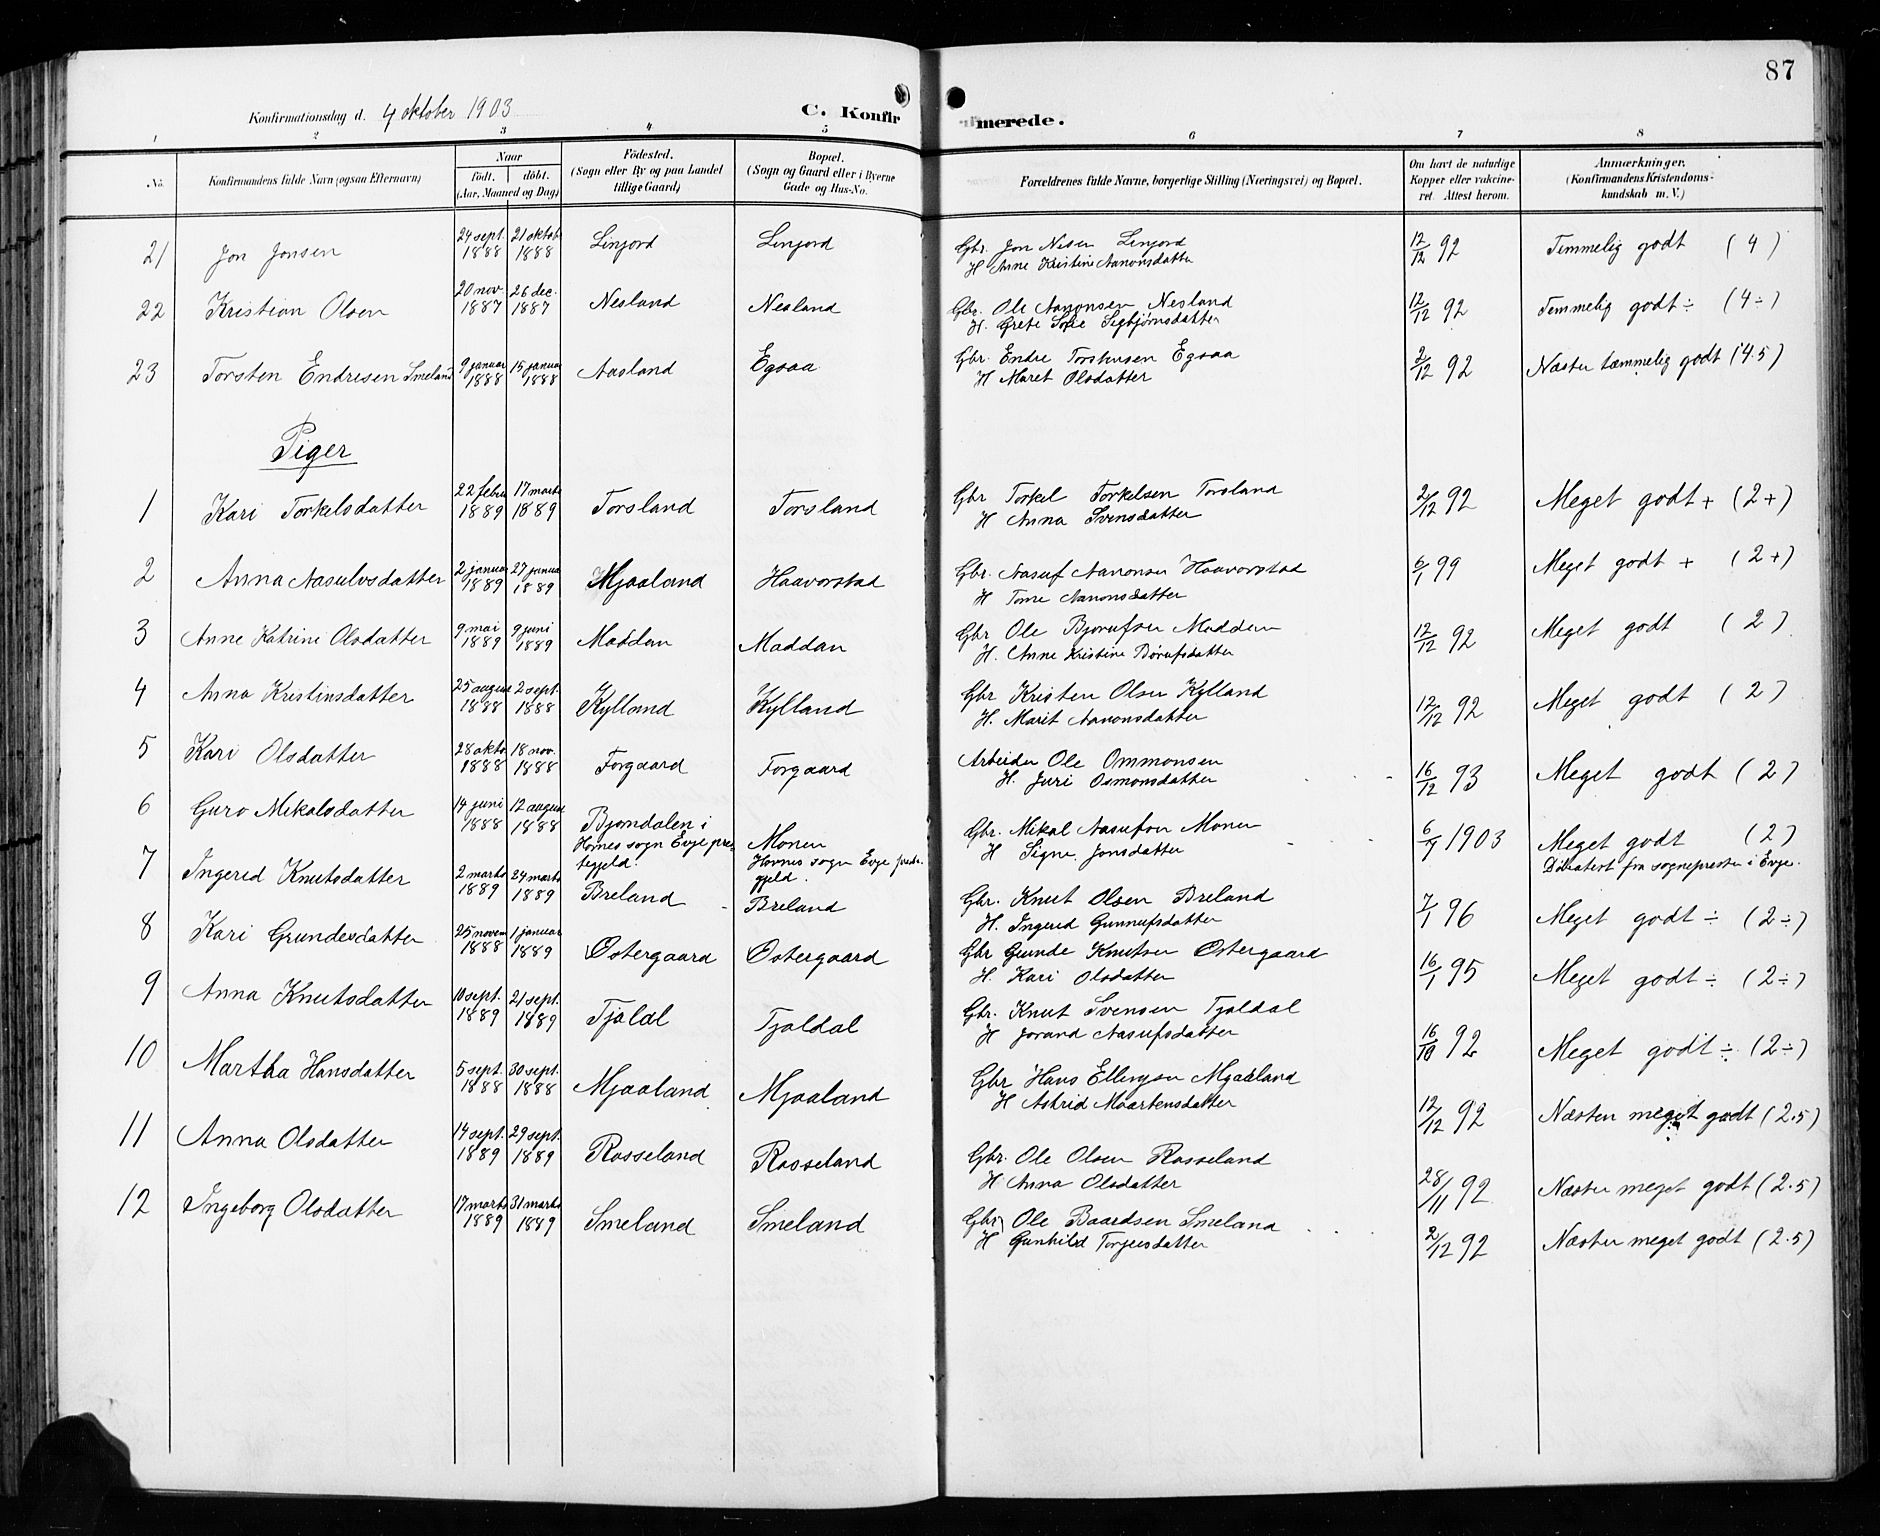 87
Konfirmationsdag d. 4 oktober 1903
C. Konfirmerede.
1 2 3 4 5 6 7 8
No. Konfirmandens fulde Navn (ogsaa Efternavn) Naar födt. döbt. (Aar, Maaned og Dag) Födested. (Sogn eller By og paa Landet tillige Gaard) Bopæl. (Sogn og Gaard eller i Byerne Gade og Hus-No. Forældrenes fulde Navne, borgerlige Stilling (Næringsvei) og Bopæl. Om havt de naturlige Kopper eller vakcineret. Attest herom. Anmærkninger. (Konfirmandens Kristendomskundskab m. V.)
21 Jon Jonsen 24 sept. 1888 21 oktob 1888 Linjord Linjord Gbr. Jon Nesen Linjord 12/12 92 Temmelig godt (4)
H Anne Kristine Aanonsdatter
22 Kristian Olsen 20 nov. 1887 26 dec. 1887 Nesland Nesland Gbr. Ole Aanonsen Nesland 12/12 92 Temmelig godt ÷ (4÷)
H. Grete Sofie Sigbjørnsdatter
23 Torsten Endresen Smeland 9 januar 1888 15 januar 1888 Aasland Egsaa Gbr. Endre Torstensen Egsaa 2/12 92 Næsten tæmmelig godt (4.5)
H Maret Olsdatter
Piger
1 Kari Torkelsdatter 22 febru 1889 17 marts 1889 Torsland Torsland Gbr Torkel Torkelsen Torsland 2/12 92 Meget godt + (2+)
H Anna Svensdatter
2 Anna Aasulvsdatter 2 januar 1889 27 janua 1889 Mjaaland Haavorstad Gbr. Aasuf Aanonsen Haavorstad 6/1 99 Meget godt + (2+)
H Tone Aanonsdatter
3 Anne Katrine Olsdatter 9 mai 1889 9 juni 1889 Maddan Maddan Gbr Ole Bjorufsen Madden 12/12 92 Meget godt (2)
H. Anne Kristine Børufsdatter
4 Anna Kristinsdatter 25 august 1888 2 sept. 1888 Kylland Kylland Gbr Kristen Olsen Kylland 12/12 92 Meget godt (2)
H. Marit Aanonsdatter
5 Kari Olsdatter 28 okto. 1888 18 nov. 1888 Forgaard Forgaard Arbeider Ole Ommonsen 16/12 93 Meget godt (2)
H. Juri Osmonsdatter
6 Guro Mikalsdatter 14 juni 1888 12 august 1888 Bjorndalen i Hornes sogn Evje prestegjeld. Monen Hornes sogn Evje prestgjeld. Gbr. Mikal Aasufsen Monen 1903 Meget godt (2)
H Signe Jonsdatter fra sognepresten i Evje.
7 Ingerid Knutsdatter 2 marts 1889 24 marts 1889 Breland Breland Gbr. Knut Olsen Breland 7/1 96 Meget godt ÷ (2÷)
H. Ingerid Gunnufsdatter
8 Kari Grundesdatter 25 novem 1888 1 januar 1889 Østergaard Østergaard Gbr Gunde Knutsen Østergaard 16/1 95 Meget godt ÷ (2÷)
H. Kari Olsdatter
9 Anna Knutsdatter 10 sept. 1889 21 sept. 1889 Tjaldal Gbr. Knut Svensen Tjaldal 16/10 92 Meget godt ÷ (2÷)
H Jorand Aasufsdatter
10 Martha Hansdatter 5 sept. 1888 30 sept. 1888 Mjaaland Mjaaland Gbr Hans Ellingsen Mjaaland 12/12 92 Næsten meget godt (2.5)
H Astrid Maartensdatter
11 Anna Olsdatter 14 sept. 1889 29 sept. 1889 Rosseland Rosseland Gbr. Ole Olsen Rosseland 28/11 92 Næsten meget godt (2.5)
H Anna Olsdatter
12 Ingeborg Olsdatter 17 marts 1889 31 marts 1889 Smeland Smeland Gbr Ole Baardsen Smeland 2/12 92 Næsten meget godt (2.5)
H Gunhild Torjusdatter